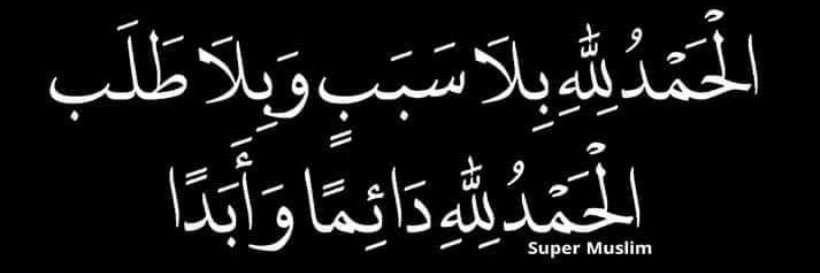 الْحَمْدُ لِلّٰهِ بِلَا سَبَبٍ وَبِلَا طَلَب
الْحَمْدُ لِلّٰهِ دَائِمًا وَأَبَدًا
Super Muslim